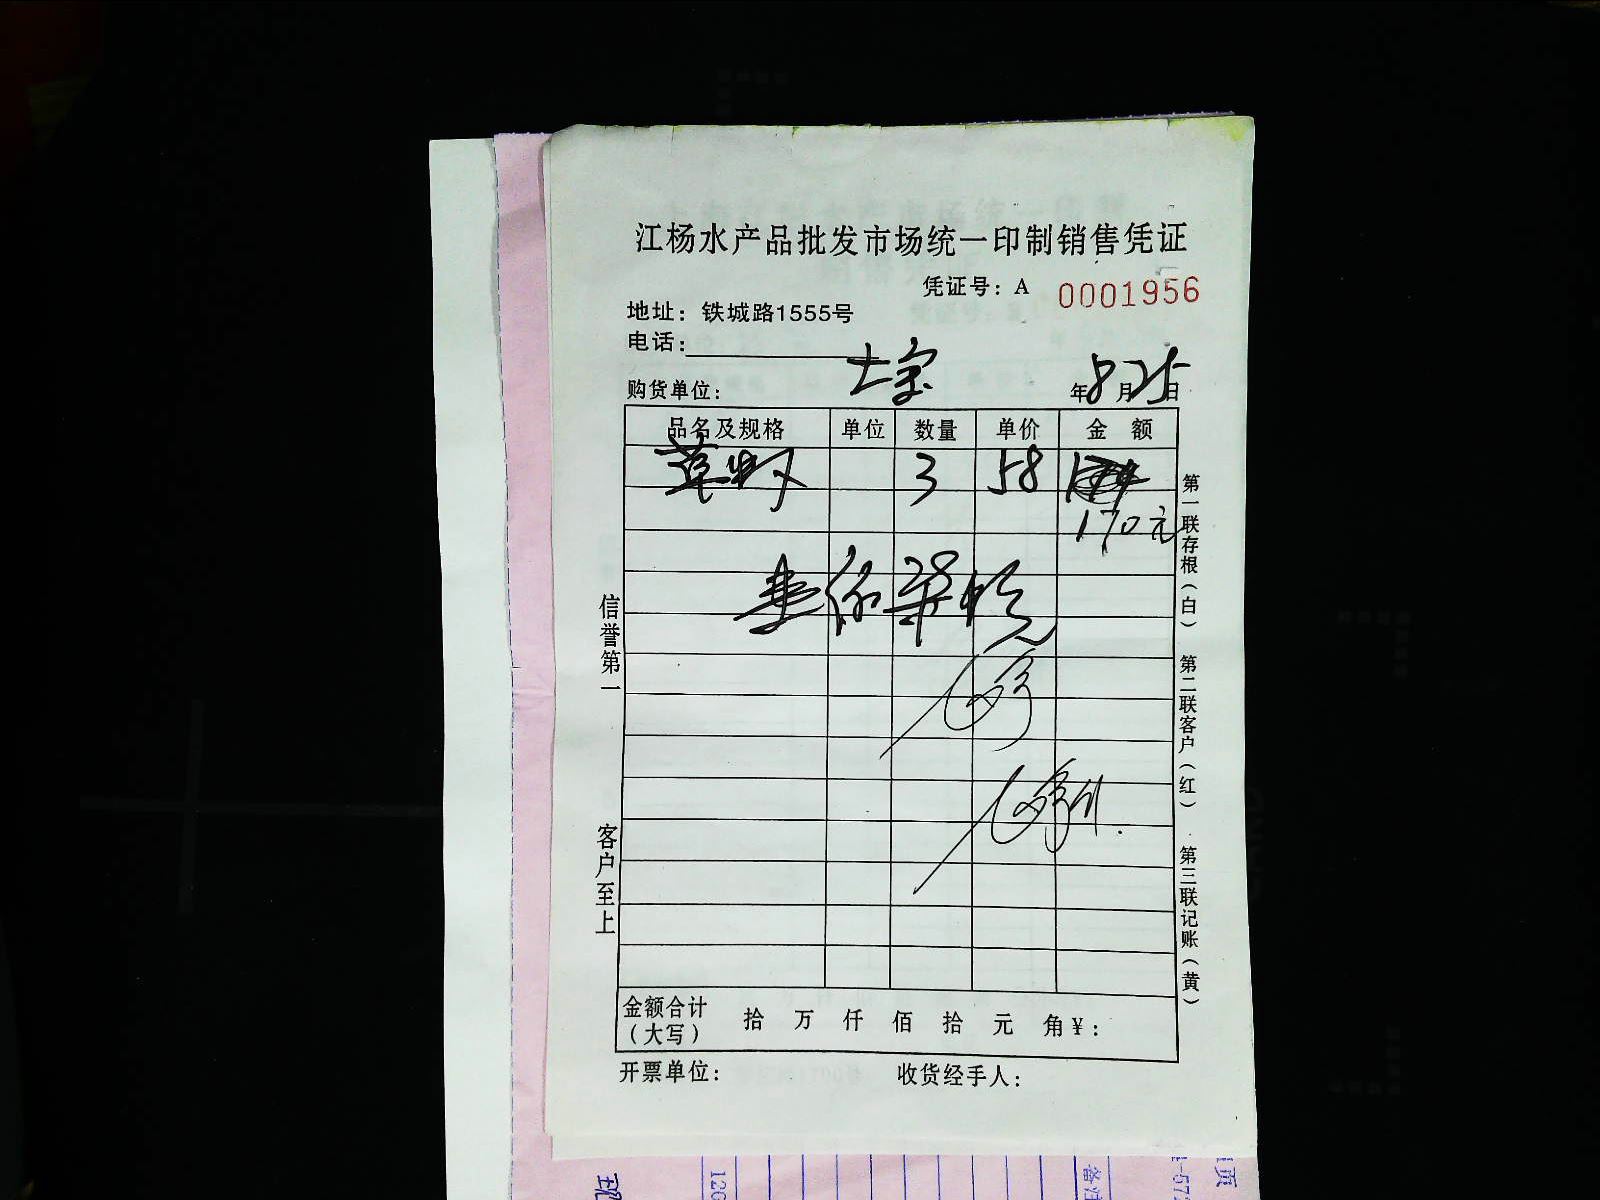 江杨水产品批发市场统一印制销售凭证
凭证号：A 0001956
地址：铁城路1555号
电话：
购货单位： 年8月25日
品名及规格 单位 数量 单价 金 额
3 58
170元
信誉第一
客户至上
第一联存根（白）
第二联客户（红）
第三联记账（黄）
金额合计（大写） 拾 万 仟 佰 拾 元 角 ¥：
开票单位： 收货经手人：